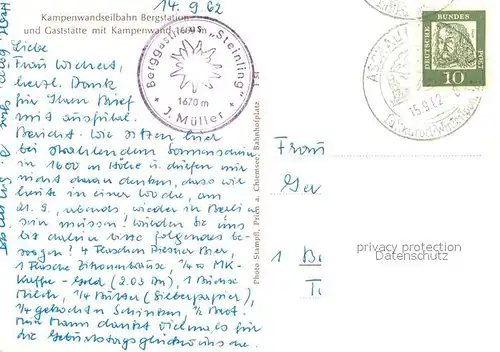 14.9.62
Kampenwandseilbahn Bergstation
und Gaststätte mit Kampenwand
Berggasthaus "Steinling"
1670 m
J. Müller
DEUTSCHE BUNDES POST
10
ASCHAU
15.9.62
Liebe
Frau
herzl. Dank
für Ihren Brief
mit ausführl.
Bericht. Wir sitzen hier
bei strahlendem Sonnenschein
in 1600 m Höhe u. dürfen mir
nicht daran denken, dass wir
heute in einer Woche, am
21.9., abends wieder in Berlin
sein müssen! Würden Sie uns
bis dahin bitte folgendes be-
sorgen? 4 Flaschen Bier,
1 Flasche 1/4 MK-
Kaffee-Gold (2.03 DM), 1 Büchse
Milch, 1/4 Butter (Silberpapier),
1/4 gekochten Schinken, 1/2 Brot.
Mein Mann dankt vielmals für
die Geburtstagsglückwünsche.
Photo Stampfl, Prien a. Chiemsee, Bahnhofplatz
Frau
1 B
privacy protection
Datenschutz